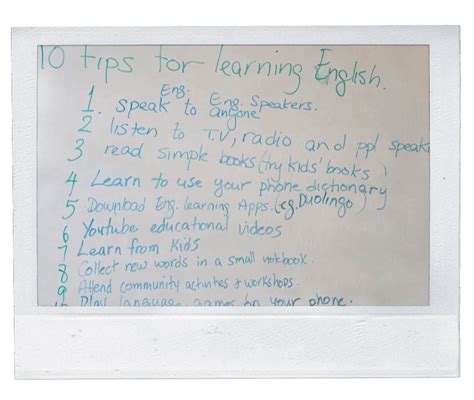 10 tips for learning English.
1. speak Eng. to Eng. Speakers. anyone
2 listen to T.V, radio and ppl speak
3 read simple books (try kids' books)
4 Learn to use your phone dictionary
5 Download Eng. learning Apps. (eg. Duolingo)
6 Youtube educational videos
7 Learn from Kids
8 Collect new words in a small notebook.
9 Attend community activities & workshops.
Play language games on your phone.